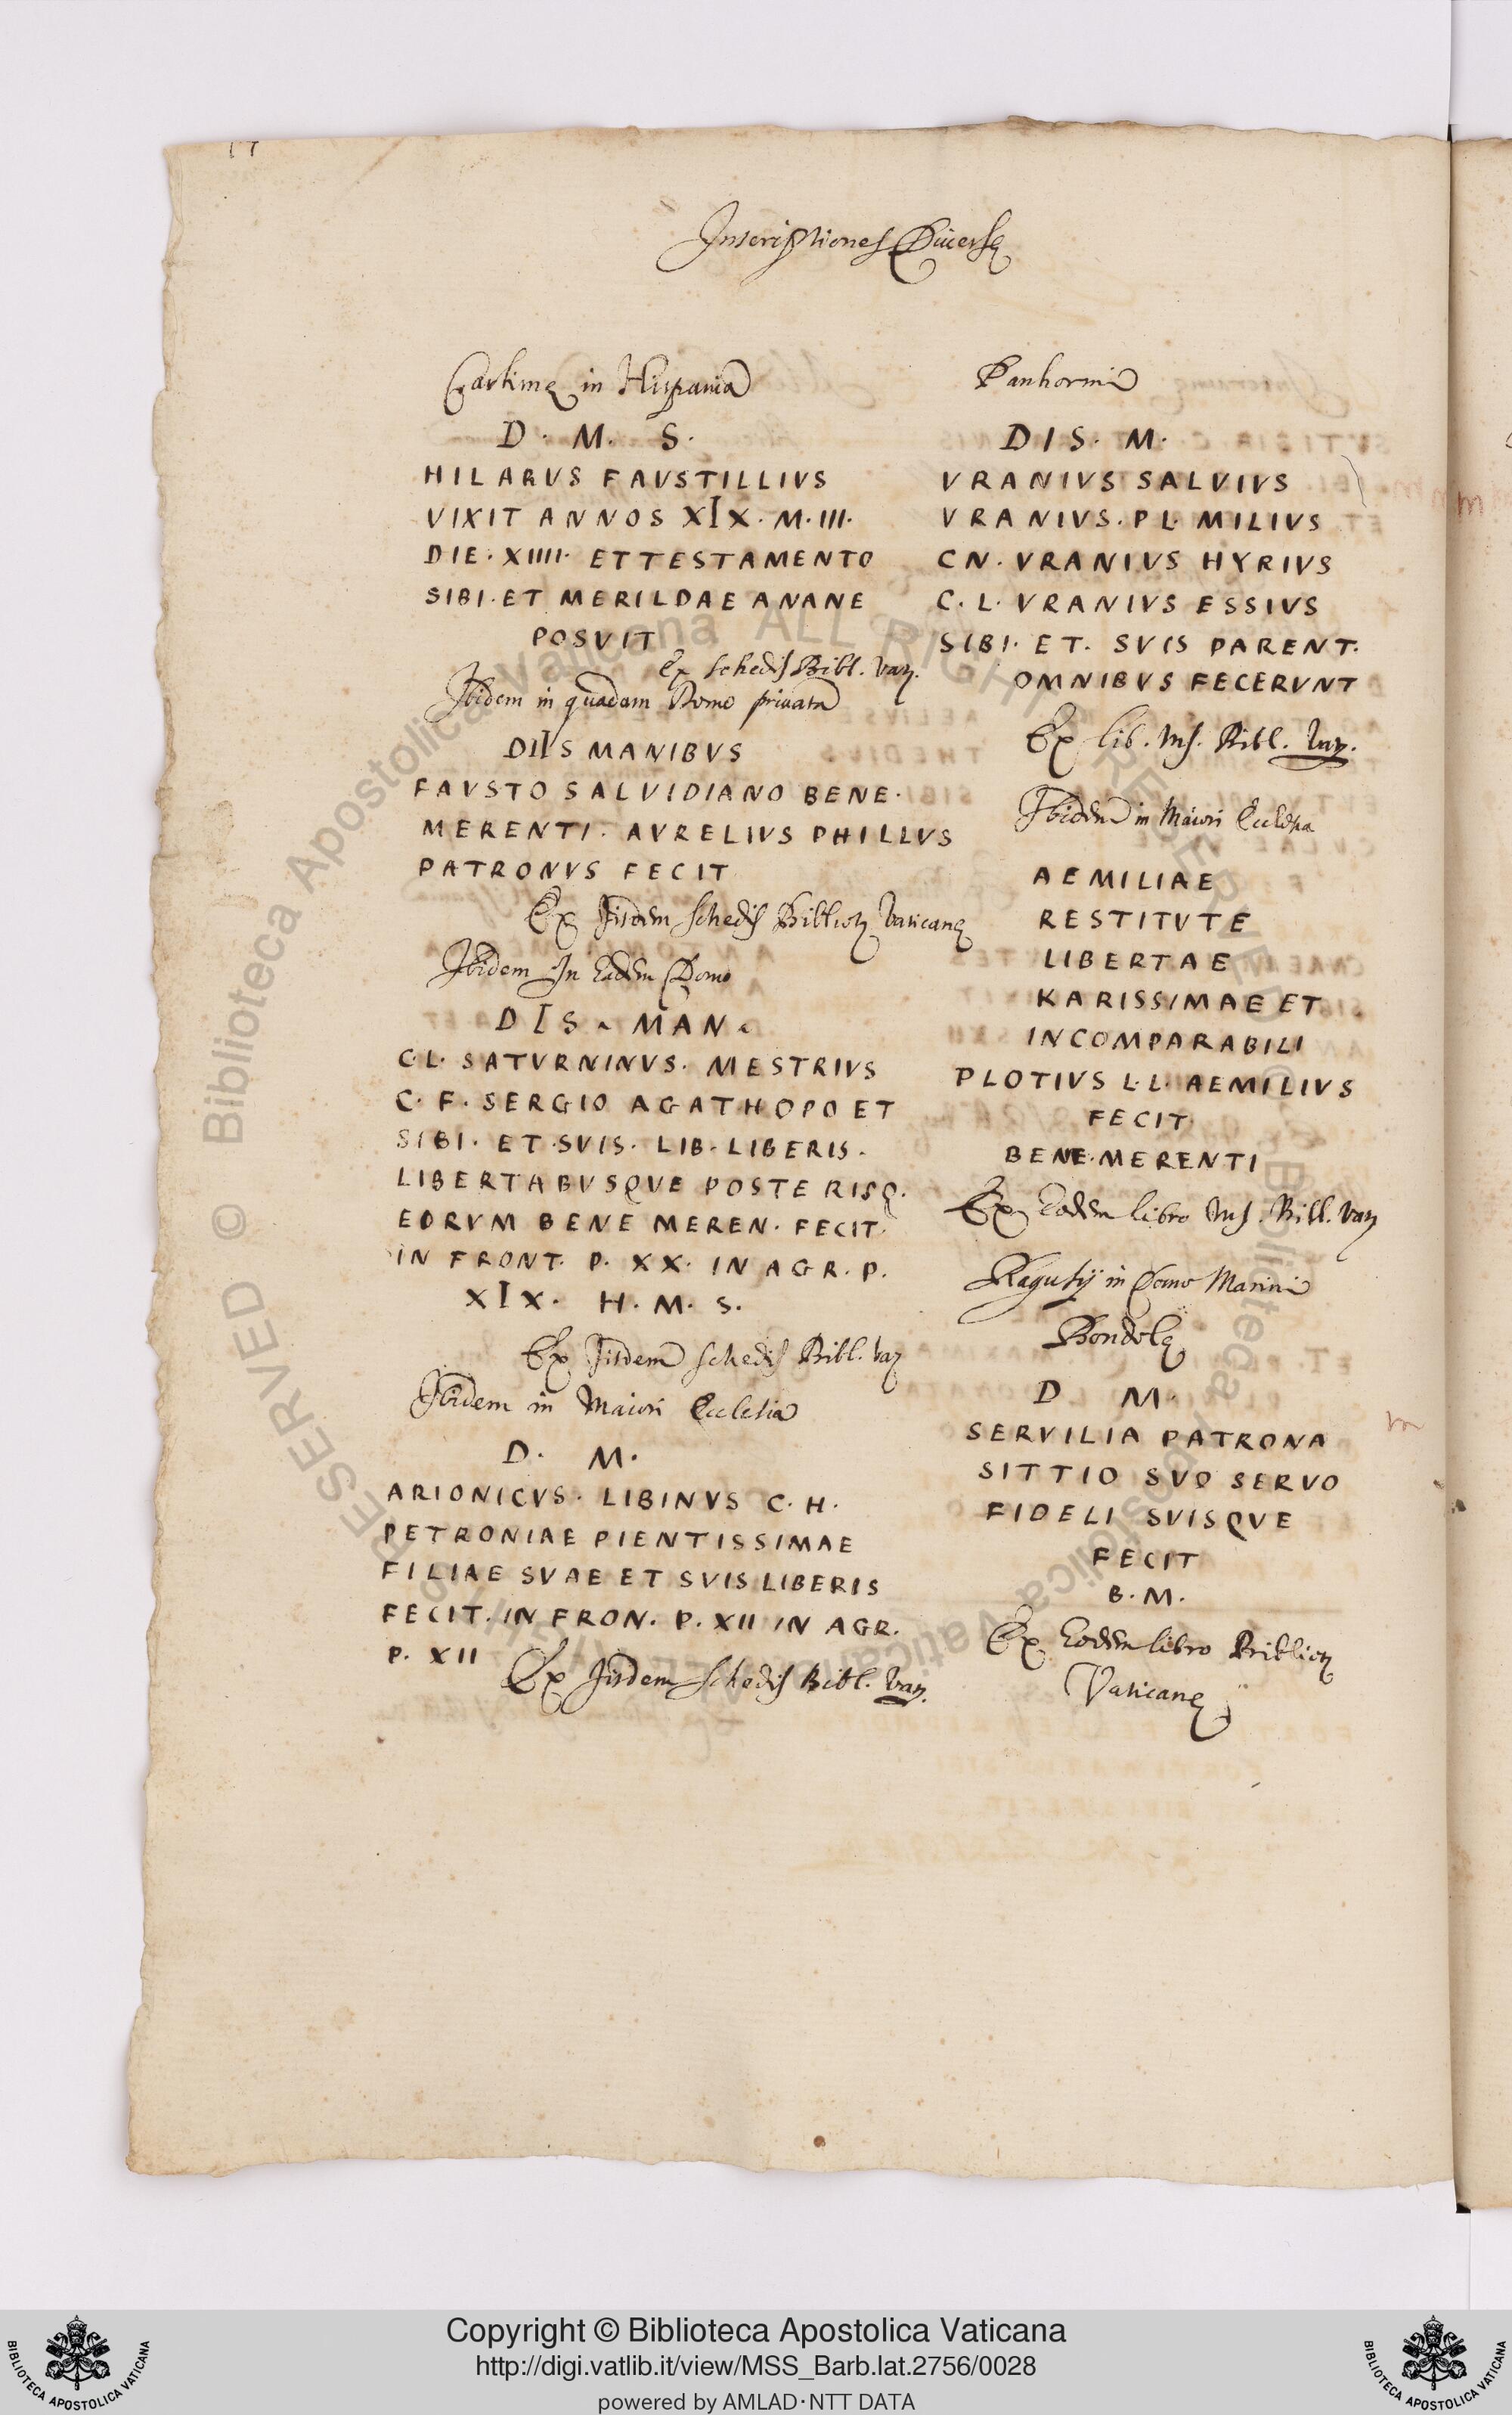 Inscriptiones Diuersę
Cartimę in Hispania
D. M. S.
HILARVS FAVSTILLIVS
VIXIT ANNOS XIX. M. III.
DIE. XIIII. ET TESTAMENTO
SIBI. ET MERILDAE ANANE
POSVIT
Ex schedis Bibl. Vat.
Ibidem in quadam Domo priuata
DIIS MANIBVS
FAVSTO SALVIDIANO BENE.
MERENTI. AVRELIVS PHILLVS
PATRONVS FECIT
Ex Iisdem schedis Biblioth Vaticanę
Ibidem In Eadem Domo
DIS. MAN.
C. L. SATVRNINVS. MESTRIVS
C. F. SERGIO AGATHOPO ET
SIBI. ET. SVIS. LIB. LIBERIS.
LIBERTABVSQVE POSTERISQ.
EORVM BENE MEREN. FECIT
IN FRONT. P. XX. IN AGR. P.
XIX. H. M. S.
Ex Iisdem schedis Bibl. Vat
Ibidem in Maiori Ecclesia
D. M.
ARIONICVS. LIBINVS C. H.
PETRONIAE PIENTISSIMAE
FILIAE SVAE ET SVIS LIBERIS
FECIT. IN FRON. P. XII IN AGR.
P. XII
Ex Iisdem schedis Bibl. Vat.
Panhormi
DIS. M.
VRANIVS SALVIVS
VRANIVS. PL. MILIVS
CN. VRANIVS HYRIVS
C. L. VRANIVS ESSIVS
SIBI. ET. SVIS PARENT.
OMNIBVS FECERVNT
Ex lib. Ms. Bibl. Vat.
Ibidem in Maiori Ecclesia
AEMILIAE
RESTITVTE
LIBERTAE
KARISSIMAE ET
INCOMPARABILI
PLOTIVS L. L. AEMILIVS
FECIT
BENE. MERENTI
Ex Eodem libro Ms. Bibl. Vat
Ragusij in Domo Marini
Bondolę
D M.
SERVILIA PATRONA
SITTIO SVO SERVO
FIDELI SVISQVE
FECIT
B. M.
Ex Eodem libro Biblioth
Vaticanę
Copyright © Biblioteca Apostolica Vaticana
http://digi.vatlib.it/view/MSS_Barb.lat.2756/0028
powered by AMLAD·NTT DATA
BIBLIOTECA APOSTOLICA VATICANA
BIBLIOTECA APOSTOLICA VATICANA